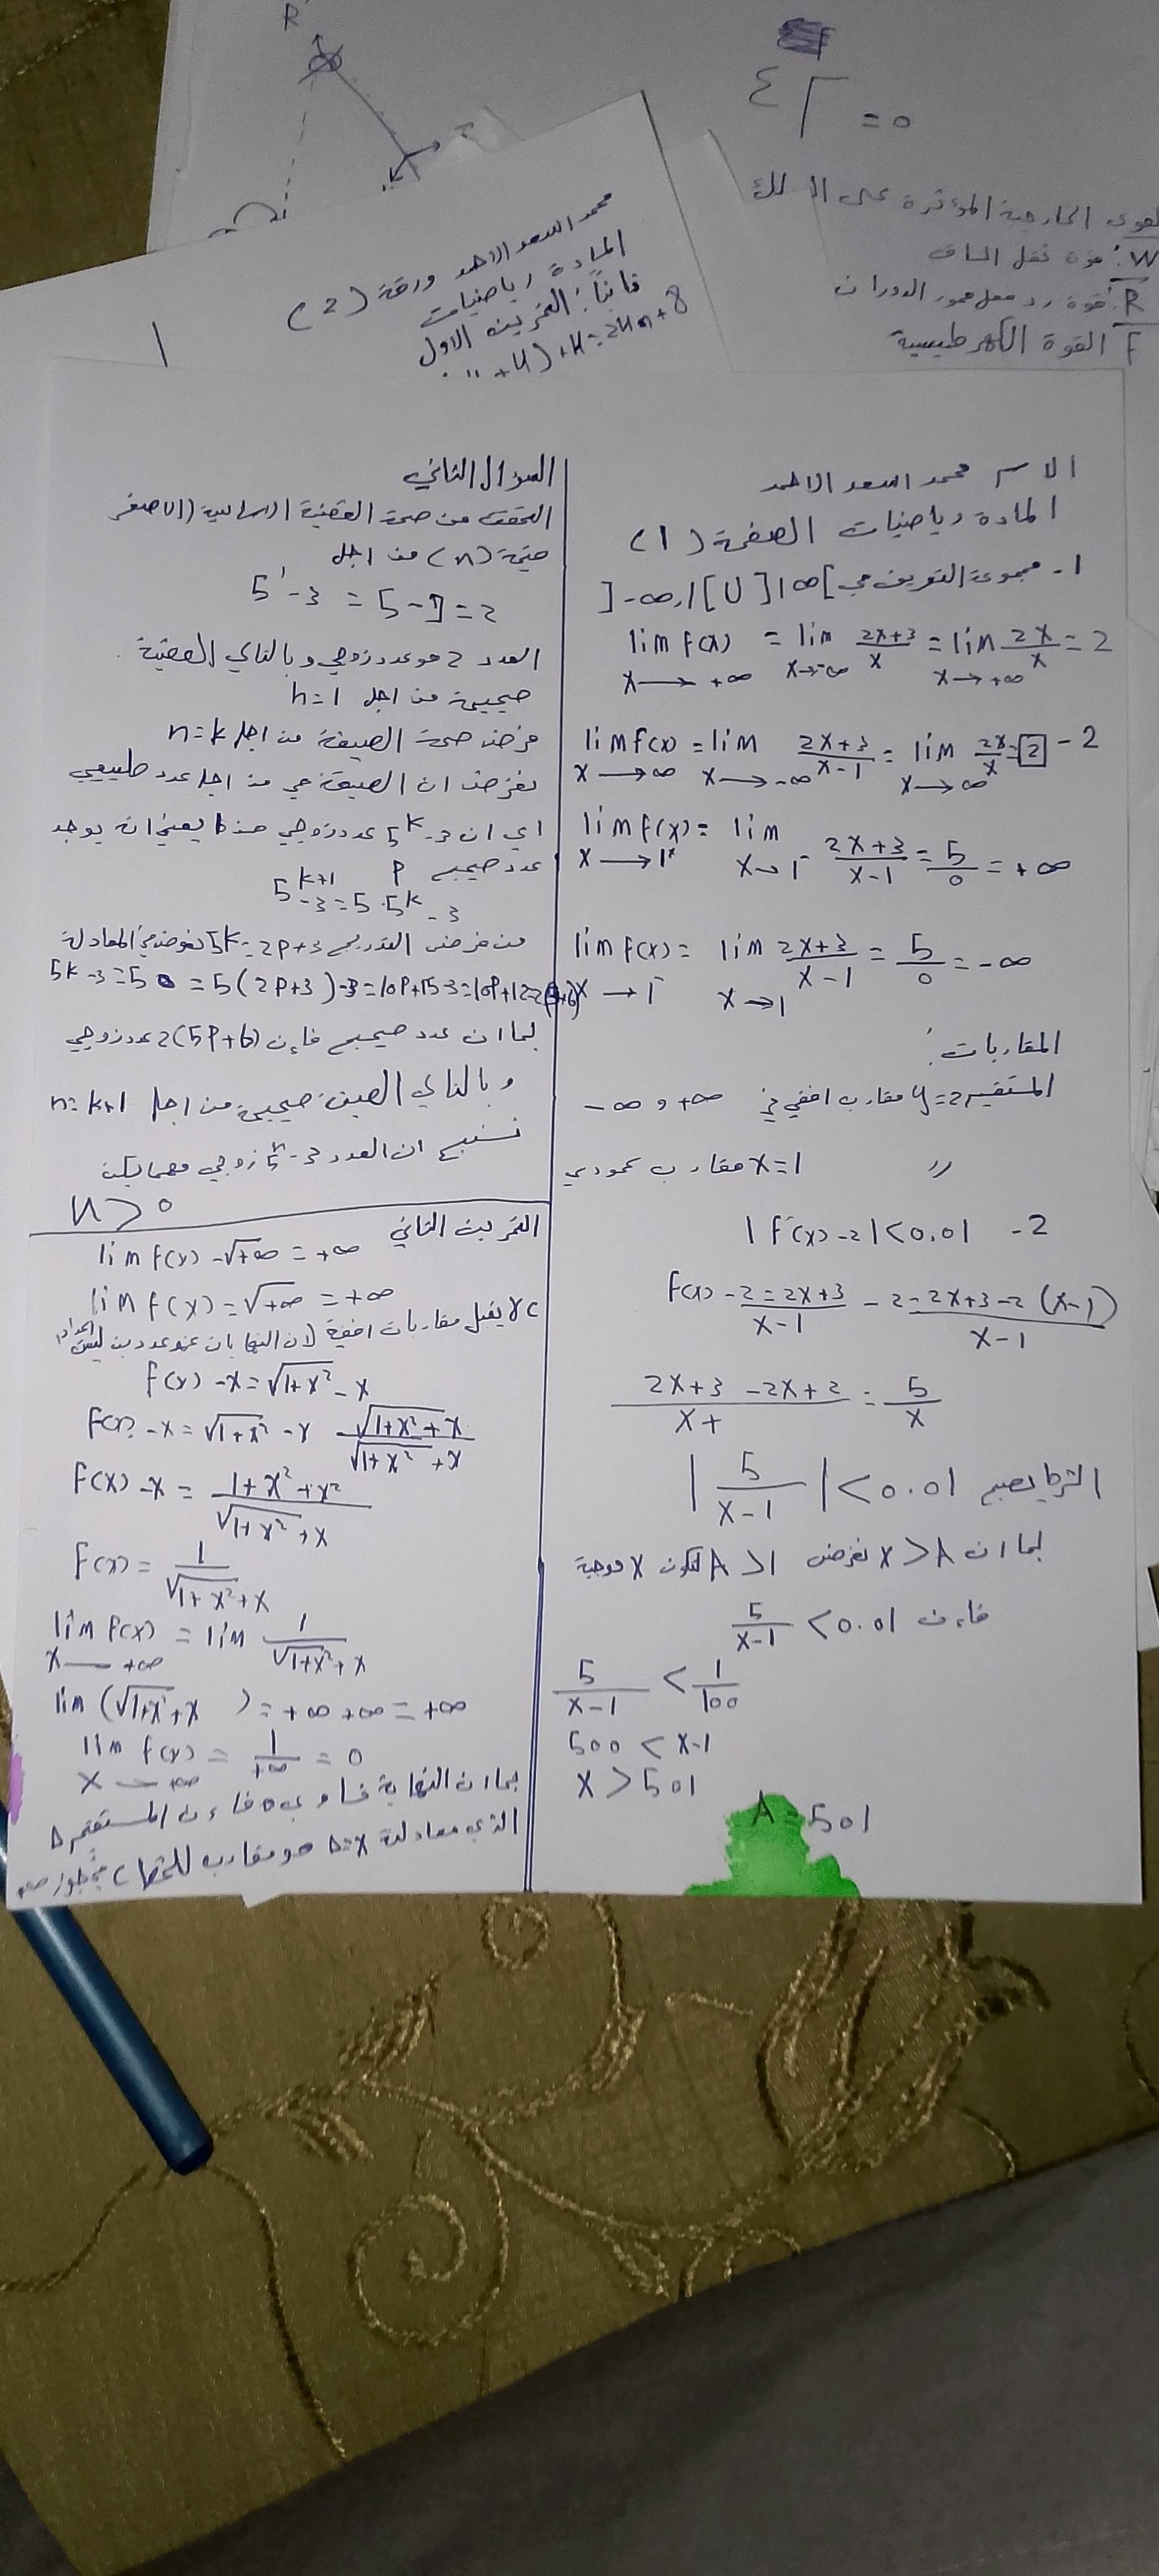 R
Σ Γ = 0
القوى الخارجية المؤثرة على السلك
W: قوة ثقل الساق
R: قوة رد فعل محور الدوران
F القوة الكهرطيسية
محمد السعد الاحمد ورقة (2)
المادة رياضيات
ثانياً: التمرين الاول
الاسم محمد السعد الاحمد
المادة رياضيات الصفحة (1)
1- مجموعة التعريف هي ]-∞,1[ U ]1,∞[
lim f(x) = lim 2x+3/x = lim 2x/x = 2
x→+∞ x→-∞ x→+∞
lim f(x) = lim 2x+3/x-1 = lim 2x/x = 2 - 2
x→∞ x→-∞ x→∞
lim f(x) = lim 2x+3/x-1 = 5/0 = +∞
x→1⁺ x→1
lim f(x) = lim 2x+3/x-1 = 5/0 = -∞
x→1⁻ x→1
المقاربات:
المستقيم y=2 مقارب افقي في +∞ و -∞
" x=1 مقارب عمودي
|f(x)-2|<0.01 -2
f(x)-2=2x+3/x-1 -2=2x+3-2(x-1)/x-1
2x+3-2x+2/x+ = 5/x
الشرط يصبح |5/x-1|<0.01
بما ان x>A نفرض A>1 لتكون x موجبة
فإن 5/x-1 <0.01
5/x-1 < 1/100
500 < x-1
x > 501
A=501
السؤال الثاني
التحقق من صحة القضية الابتدائية (الاصغر
قيمة (n) من اجل
5¹-3 = 5-3=2
العدد 2 هو عدد زوجي وبالتالي القضية
صحيحة من اجل n=1
فرض صحة الصيغة من اجل n=k
نفرض ان الصيغة هي من اجل عدد طبيعي
اي ان 5^k-3 عدد زوجي هذا يعني انه يوجد
عدد صحيح P
5^k+1 -3=5.5^k -3
من فرض التدريج 5k=2P+3 نعوض في المعادلة
5k-3=5 =5(2P+3)-3=10P+15-3=10P+12=2(5P+6)
بما ان عدد صحيح فإن 2(5P+6) عدد زوجي
وبالتالي الصيغة صحيحة من اجل n=k+1
نستنتج ان العدد 5ⁿ-3 زوجي مهما يكن
n>0
التمرين الثاني
lim f(x) -√+∞ = +∞
lim f(x)=√+∞ = +∞
C لا يقبل مقاربات افقية لان النهايات عند حدين ليست اعداد
f(x)-x=√1+x² -x
f(x)-x=√1+x² -x √1+x²+x/√1+x²+x
f(x)-x = 1+x²+x²/√1+x²+x
f(x)=1/√1+x²+x
lim f(x) = lim 1/√1+x²+x
x→+∞
lim (√1+x²+x )=+∞+∞=+∞
lim f(x) = 1/+∞ = 0
x→+∞
بما ان النهاية تساوي 0 فإن المستقيم Δ
الذي معادلته Δ=x هو مقارب للخط C بجوار +∞